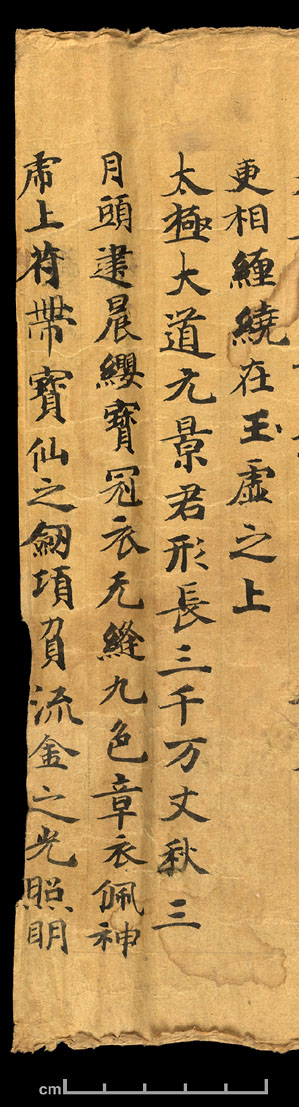 更相纏繞在玉虛之上
太極大道元景君形長三千万丈秋三
月頭建晨纓寶冠衣无縫九色章衣佩神
虎上符帶寶仙之劒項負流金之光照明
cm